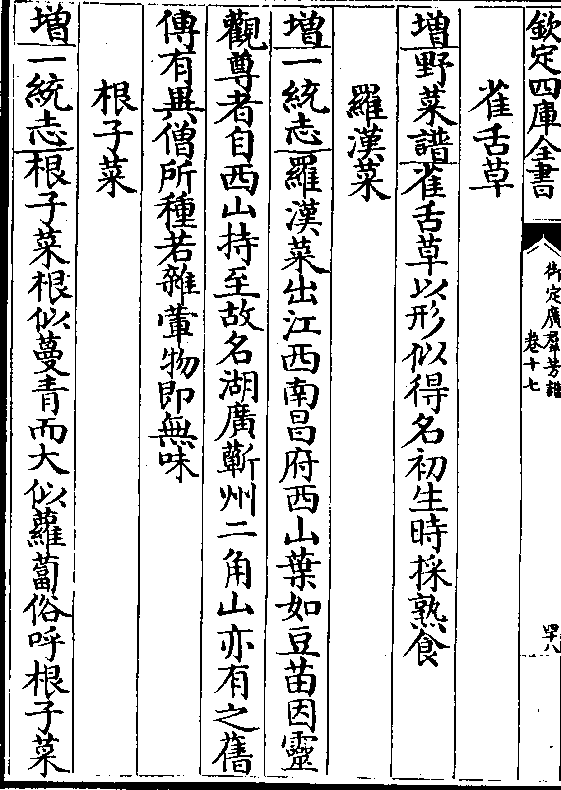 欽定四庫全書
御定廣羣芳譜
卷十七
四八
雀舌草
增野菜譜雀舌草以形似得名初生時採熟食
羅漢菜
增一統志羅漢菜出江西南昌府西山葉如豆苗因靈
觀尊者自西山持至故名湖廣蘄州二角山亦有之舊
傳有異僧所種若雜葷物即無味
根子菜
增一統志根子菜根似蔓青而大似蘿蔔俗呼根子菜